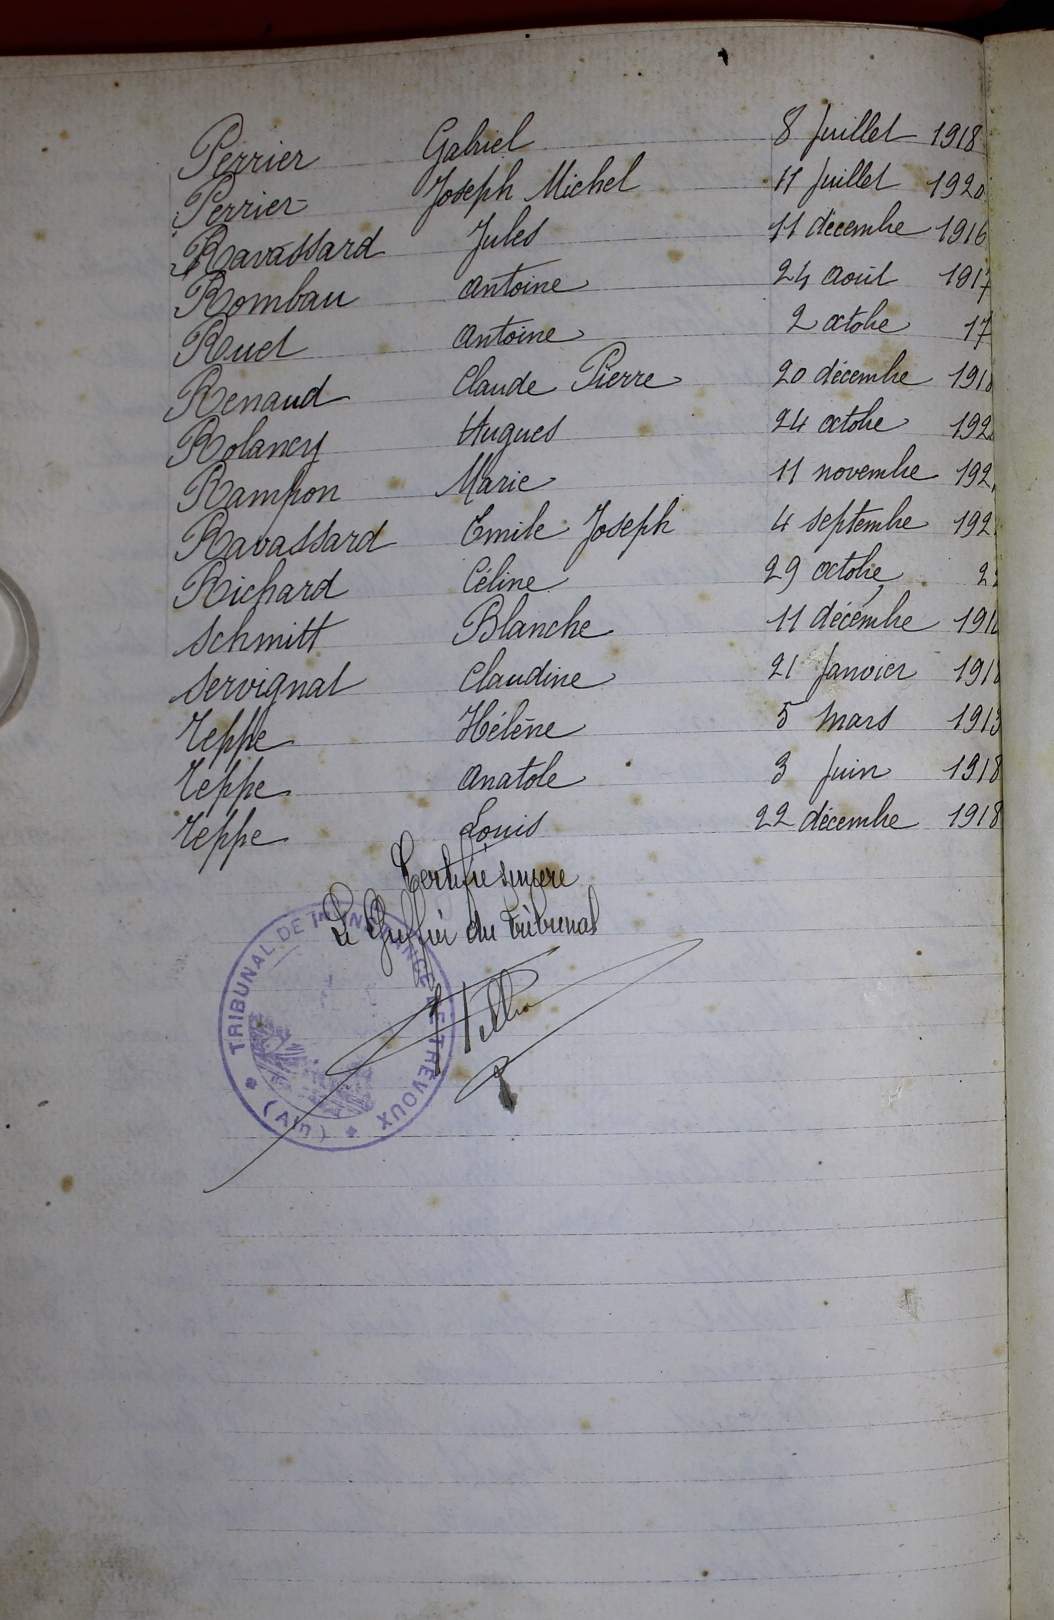 Perrier Gabriel 8 Juillet 1918
Perrier Joseph Michel 11 Juillet 1920
Ravassard Jules 11 décembre 1916
Rombau Antoine 24 Aout 1917
Ruet Antoine 2 octobre 17
Renaud Claude Pierre 20 décembre
Rolancy Hugues 24 octobre
Rampon Marie 11 novembre
Ravassard Emile Joseph 4 septembre
Richard Céline 29 octobre
Schmitt Blanche 11 décembre
Servignat Claudine 21 Janvier
Teppe Hélène 5 Mars 1913
Teppe Anatole 3 Juin 1918
Teppe Louis 22 décembre 1918
Certifié sincère
Le Greffier du tribunal
TRIBUNAL DE 1ère INSTANCE DE TREVOUX
* (Ain) *